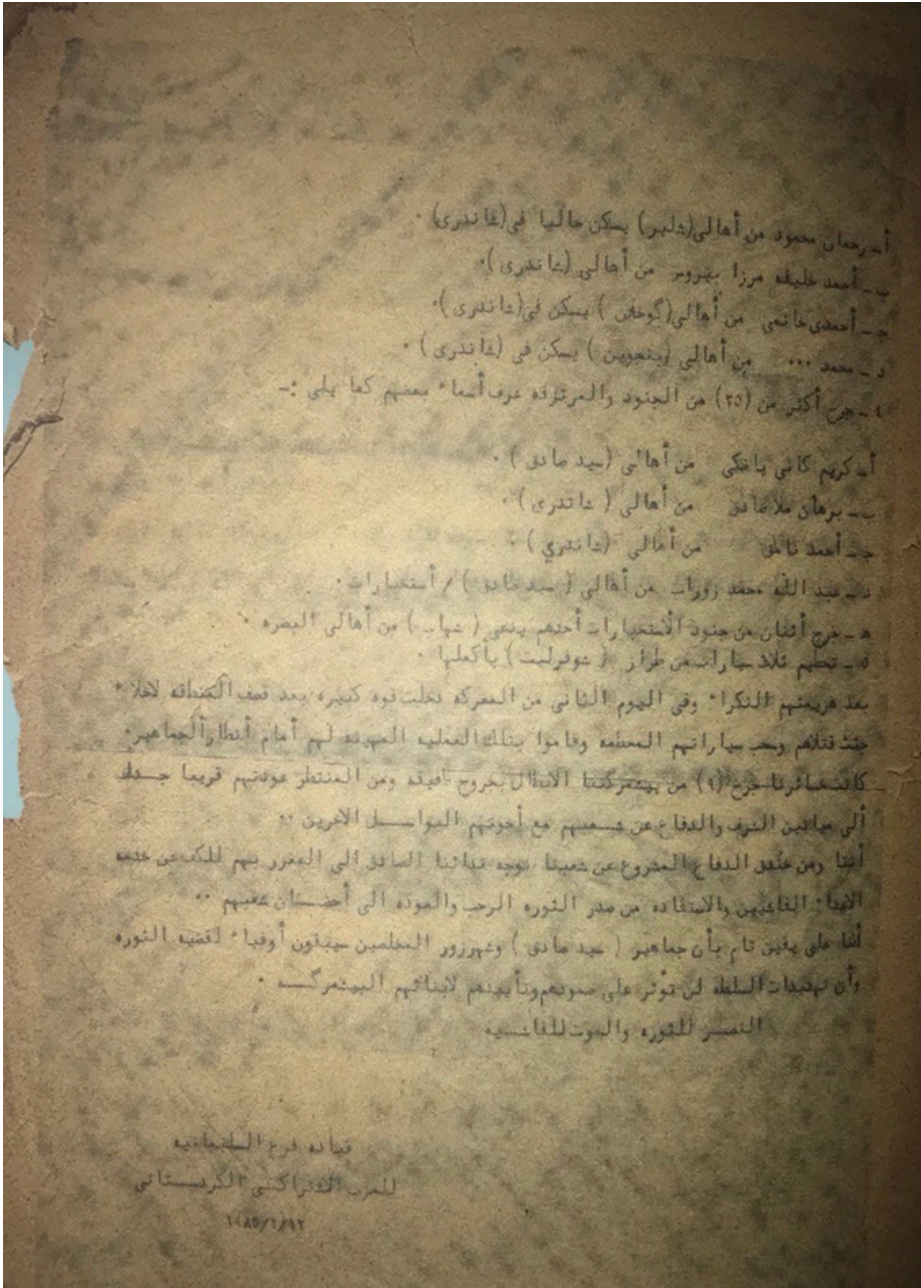 أ ـ رحمان محمود من أهالي (شلير) يسكن حاليا في (شاندرى) ٠
ب ـ أحمد خليفه مرزا بهروس من أهالى (شاندرى )٠
جـ ـ أحمدى خانمى من أهالى( گوخلان ) يسكن في(شاندرى)٠
د ـ محمد ٠٠٠ من أهالى ( پنجوين ) يسكن فى (شاندرى ) ٠
٤ ـ جرح أكثر من (٢٥) من الجنود والمرتزقه عرف أسماء بعضهم كما يلى :ـ
أ ـ كريم كانى پانكى من أهالى (سيد صادق ) ٠
ب ـ برهان ملا صادق من أهالى ( شاندرى ) ٠
جـ ـ أحمد من أهالى (شاندري ) ٠
د ـ عبد الله محمد زوراب من أهالى ( سيد صادق ) / أستخبارات ٠
ه ـ جرح أثنان من جنود الأستخبارات أحدهم يدعى ( شهاب ) من أهالى البصره ٠
٥ ـ تحطيم ثلاث سيارات من طراز ( شوفرليت ) بأكملها ٠
بعد هزيمتهم النكراء وفى اليوم الثانى من المعركه دخلت قوه كبيره بعد قصف المنطقه لاخلاء
جثث قتلاهم وسحب سياراتهم المحطمه وقاموا بتلك العمليه المهينه لهم أمام أنظار ألجماهير ٠
كانت خسائرنا جرح (١) من بيشمرگتنا الابطال بجروح طفيفه ومن المنتظر عودتهم قريبا جـدا
ألى ميادين الشرف والدفاع عن شـعبهم مع أخوتهم البواسـل الاخرين ٠٠
أننا ومن خندق الدفاع المشروع عن شعبنا نوجه ندائنا الصادق الى المغرر بهم للكف عن خدمه
الاعداء الفاشيين والاستفاده من صدر الثوره الرحب والعوده الى أحضـان شعبهم ٠٠
أننا على يقين تام بأن جماهير ( سيد صادق ) وشهرزور المخلصين سيبقون أوفياء لقضيه الثوره
وأن تهديدات السلطه لن تؤثر على صمودهم وتأييدهم لابنائهم البيشمرگـه ٠
النصـر للثوره والموت للفاشيه
قياده فرع السليمانيه
للحزب الاشتراكـي الكردسـتانى